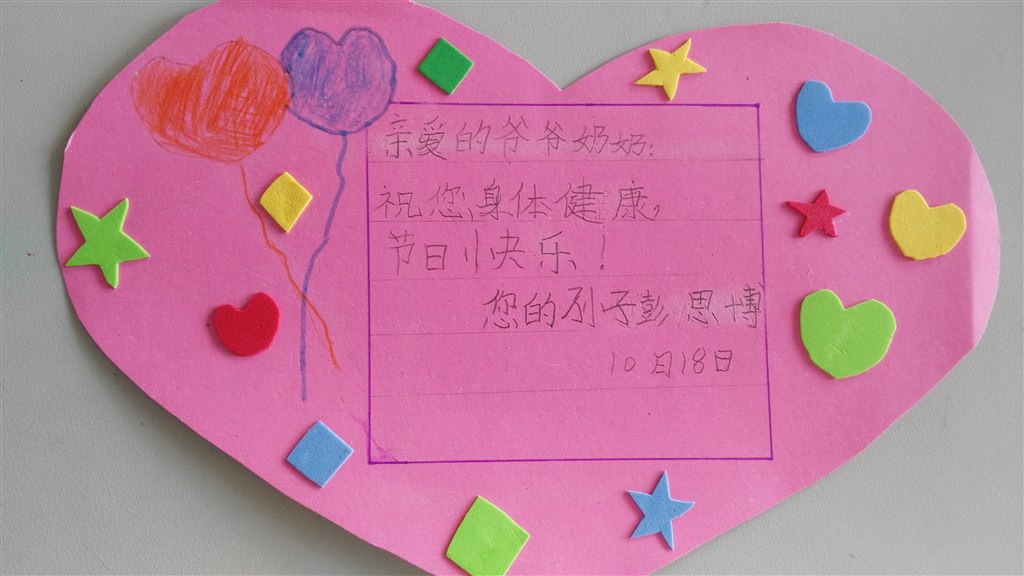 亲爱的爷爷奶奶:
祝您身体健康,
节日快乐!
您的孙子彭思博
10月18日